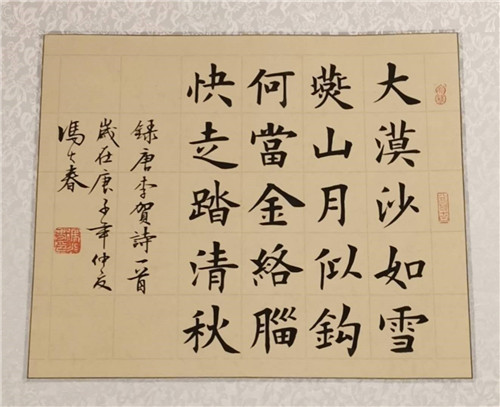 大漠沙如雪
燕山月似鈎
何當金絡腦
快走踏清秋
錄唐李賀詩一首
歲在庚子年仲夏
馮春